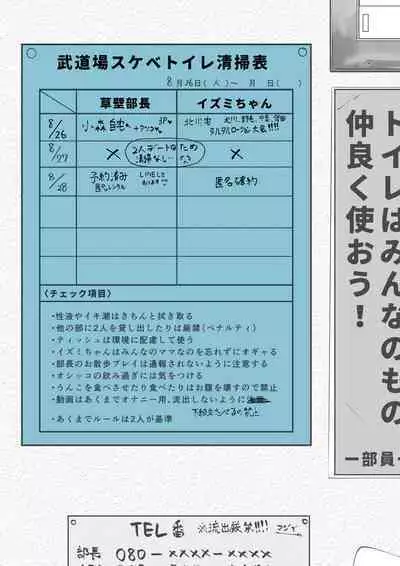 武道場スケベトイレ清掃表
8月26日(　)～　月　日(　)
草壁部長 イズミちゃん
8/26 小森自宅 3P 北川宅
8/27 × 2人デートなため清掃なし ×
8/28 予約済み 匿名確約
〈チェック項目〉
・性液やイキ潮はきちんと拭き取る
・他の部に2人を貸し出したりは厳禁(ペナルティ)
・ティッシュは環境に配慮して使う
・イズミちゃんはみんなのママなのを忘れずにオギャる
・部長のお散歩プレイは通報されないように注意する
・オシッコの飲み過ぎには気をつける
・うんこを食べさせたり食べたりはお腹を壊すので禁止
・動画はあくまでオナニー用、流出しないように
・あくまでルールは2人が基準
トイレはみんなのもの
仲良く使おう！
ー部員
TEL番 ※流出厳禁!!!!
部長 080-××××-××××